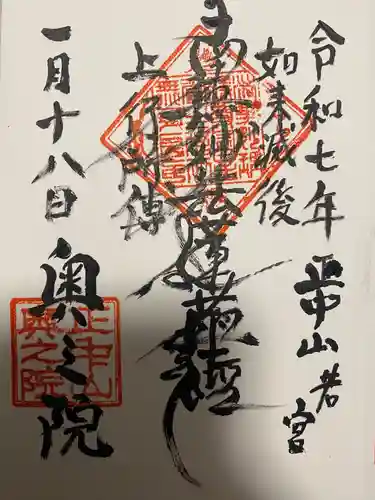 令和七年 正中山 若宮
如来滅後
南無妙法蓮華経
上行所傳
一月十八日 奥之院
正中山
奥之院